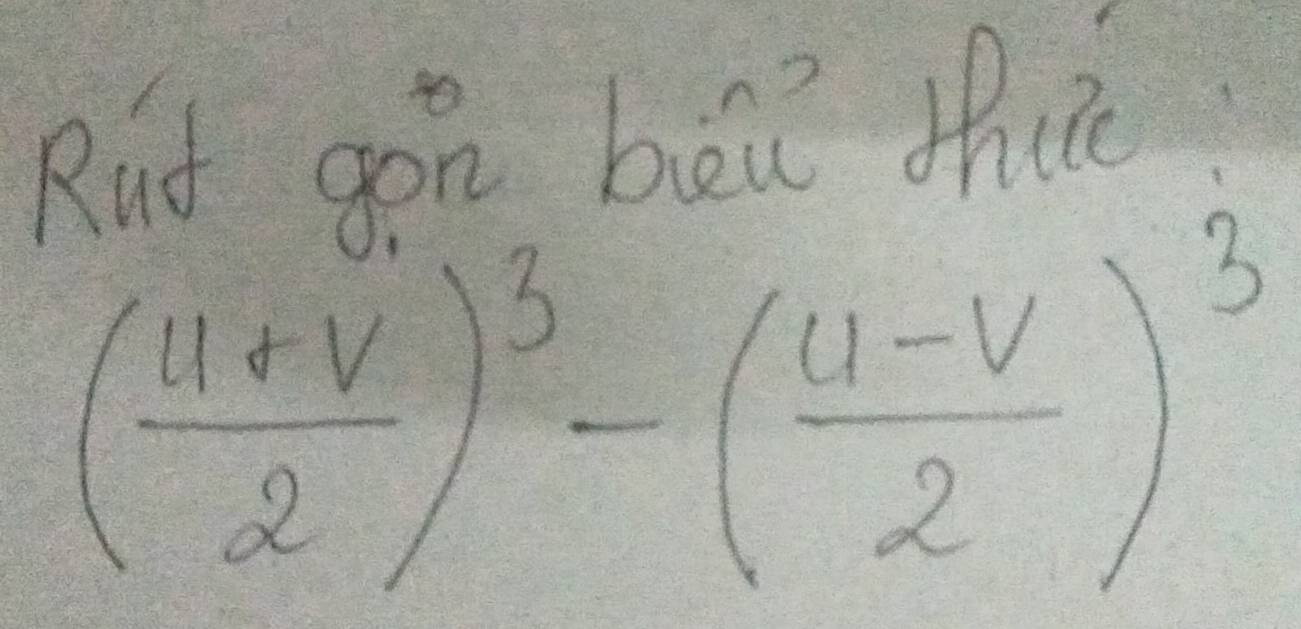 Rút gọn biểu thức:
(\frac{u+v}{2})^3 - (\frac{u-v}{2})^3